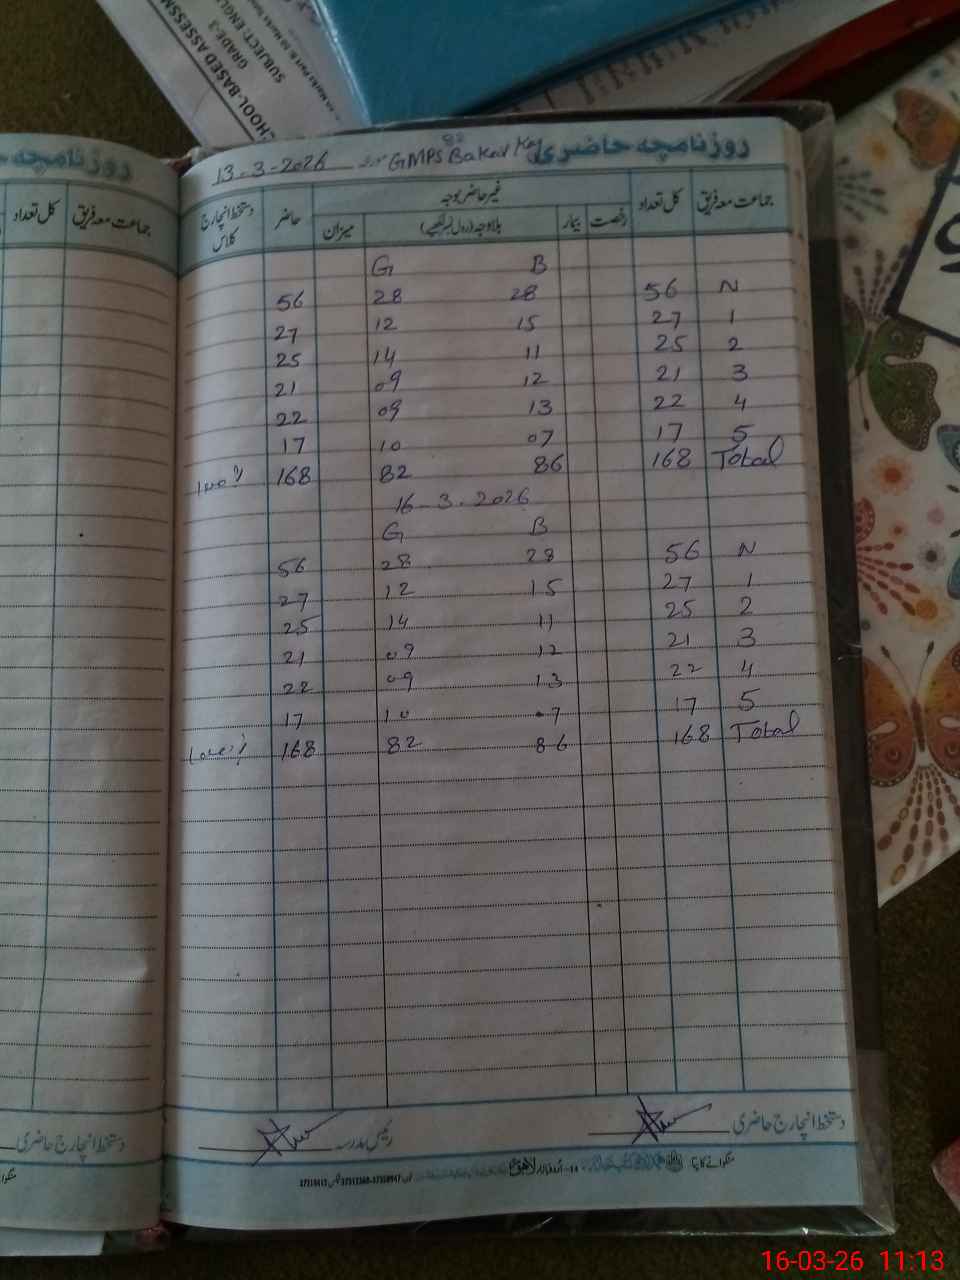 SCHOOL-BASED ASSESSM
SUBJECT: ENGL
GRADE-3
روزنامچہ حاضری
13-3-2026 GMPS Bakar Key روزنامچہ حاضری
جماعت معہ فریق کل تعداد
جماعت معہ فریق کل تعداد غیر حاضر بوجہ حاضر دستخط انچارج کلاس
رخصت بیمار بلاوجہ (رول نمبر لکھیے) میزان
G B
56 28 28 56 N
27 12 15 27 1
25 14 11 25 2
21 09 12 21 3
22 09 13 22 4
17 10 07 17 5
100% 168 82 86 168 Total
16-3-2026
G B
56 28 28 56 N
27 12 15 27 1
25 14 11 25 2
21 09 12 21 3
22 09 13 22 4
17 10 07 17 5
100% 168 82 86 168 Total
دستخط انچارج حاضری رئیس مدرسہ
دستخط انچارج حاضری
منگوانے کا پتا اردو بازار لاہور
16-03-26 11:13